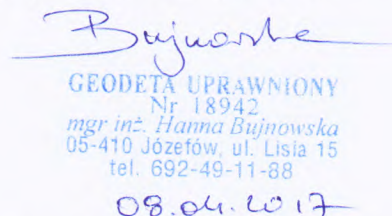 Bujnowska
GEODETA UPRAWNIONY
Nr 18942
mgr inż. Hanna Bujnowska
05-410 Józefów, ul. Lisia 15
tel. 692-49-11-88
08.04.2017